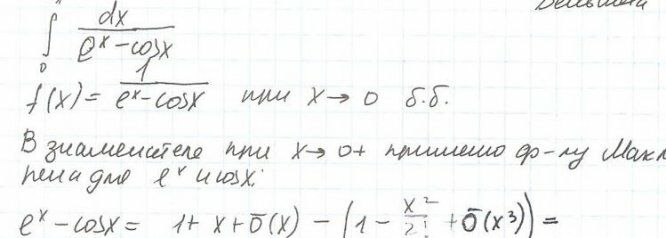 ∫₀ dx / (eˣ - cosx)
f(x) = 1 / (eˣ - cosx) при x → 0 б.б.
В знаменателе при x → 0+ применю ф-лу Макл
рена для eˣ и cosx:
eˣ - cosx = 1 + x + ō(x) - (1 - x²/2! + ō(x³)) =